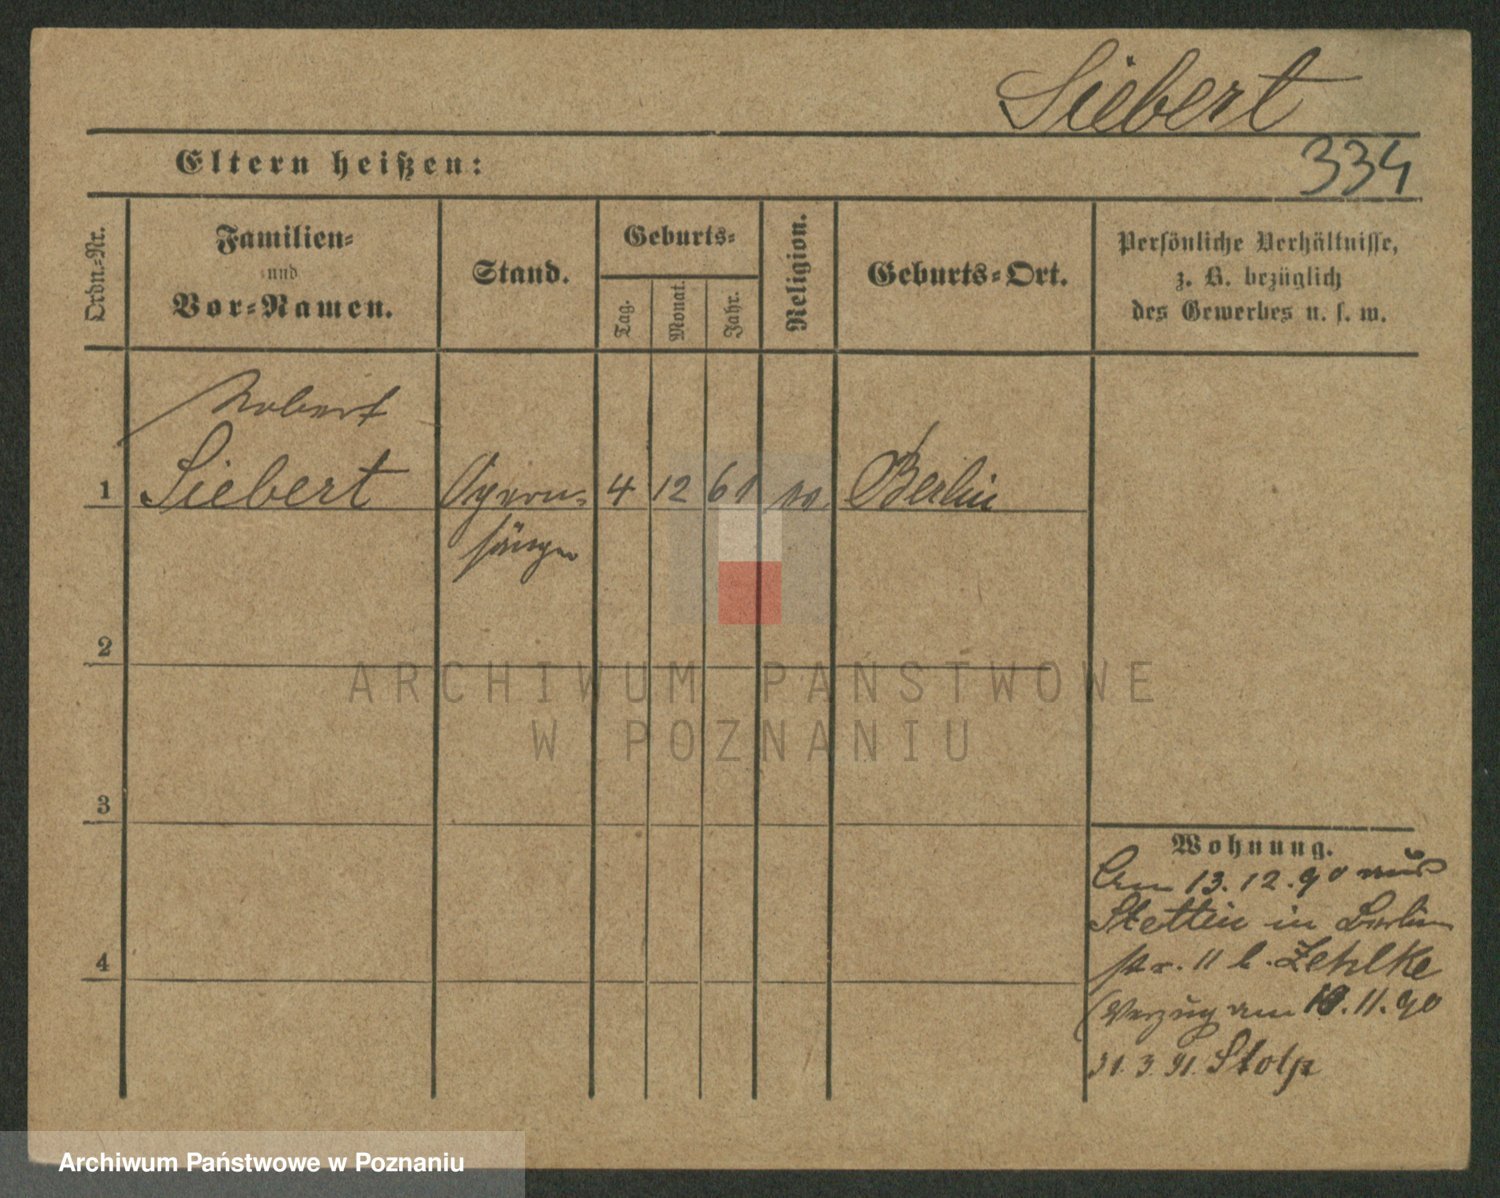 Siebert
334
Eltern heißen:
Ordn.-Nr.
Familien-
und
Vor-Namen.
Stand.
Geburts-
Tag.
Monat.
Jahr.
Religion.
Geburts-Ort.
Persönliche Verhältnisse,
z. B. bezüglich
des Gewerbes u. s. w.
Robert
1 Siebert Opern- 4 12 61 Berlin
sänger
2
3
4
Wohnung.
Am 13.12.90 aus
Stettin in Berlin
str. 11 b. Zehlke
(Verzug am .11.90
31.3.91. Stolp
ARCHIWUM PAŃSTWOWE
W POZNANIU
Archiwum Państwowe w Poznaniu